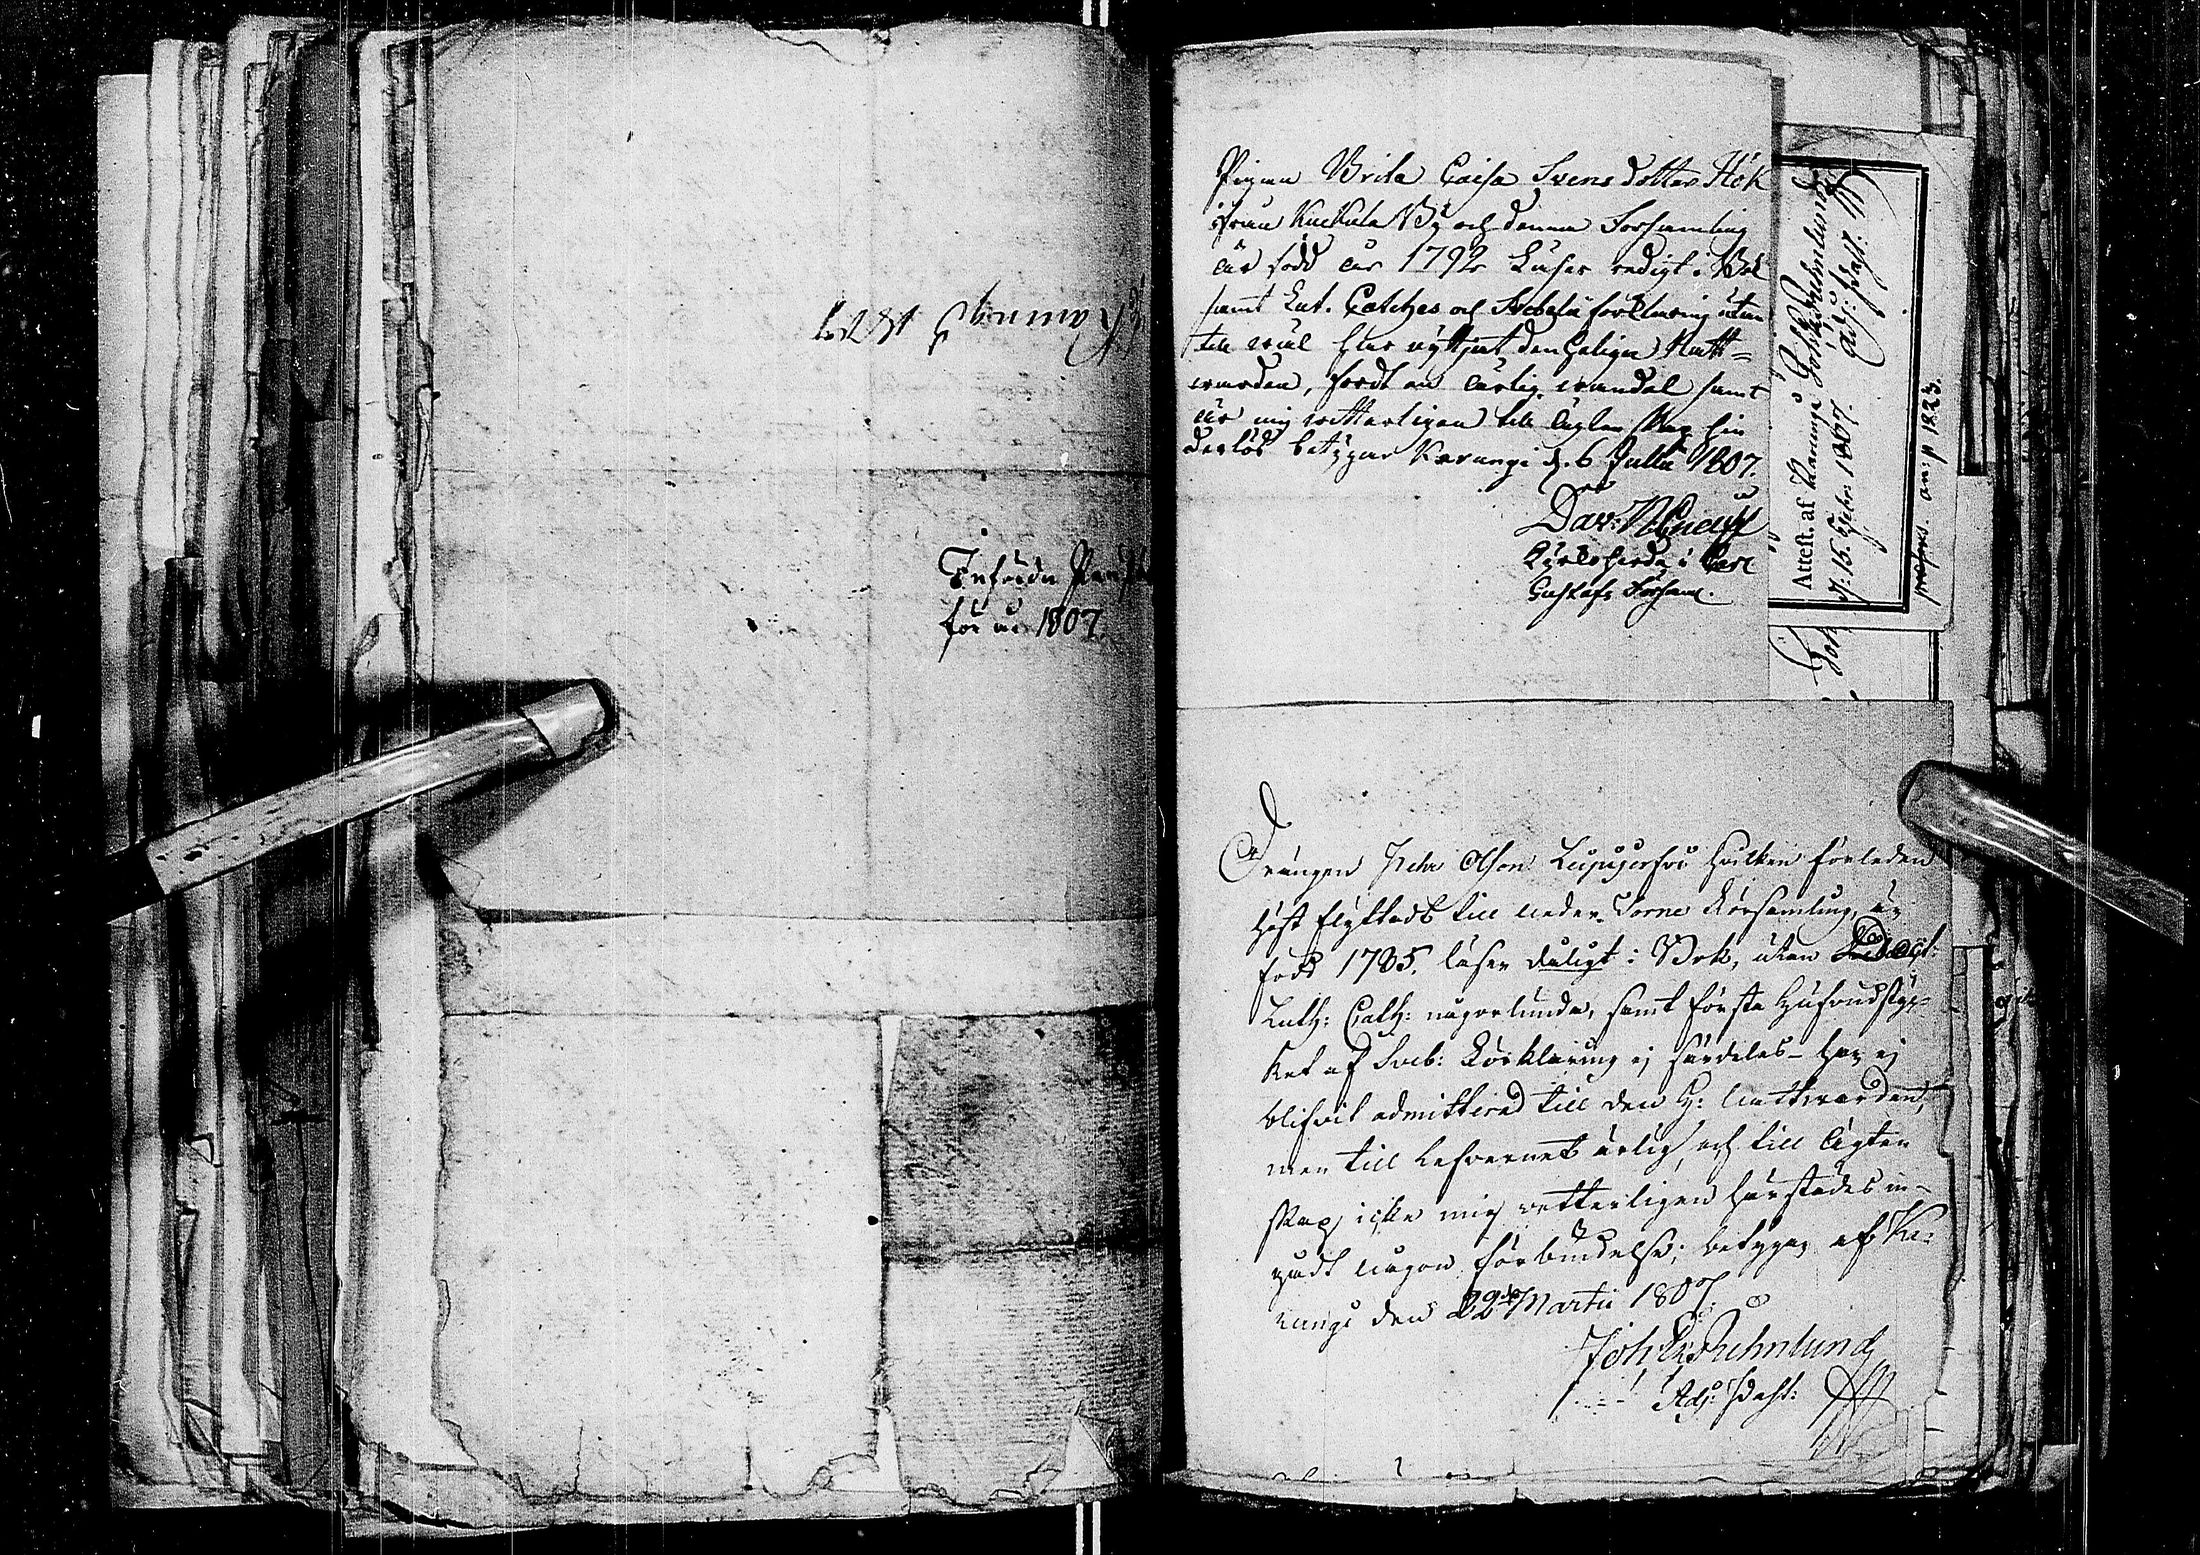 Karungj 1807
Infördn
för år 1807.
Pigan Brita Caisa Svensdotter Hök
ifrån Kuckula By och denna Församling
är född år 1792 Läser redigt i Bok
samt Lut. Catches och Svebelii förklaring utan
till wäl har nyttjat den helige Natt=
warden, fördt en ärlig wandel samt
är mig wetterligen till ägtenskap hin
derlös betygar Karungi d. 6 Julii 1807.
Kyrkoherde i Carl
Gustafs Församl.
Attest. af Karungi
d: 15. 1807. Adj: Past:
1823.
Joh
Drängen Pehr Olson Lappjerfvi hvilken förleden
höst flyttadt till neder Torne Församling, är
född 1785. läser dåligt i Bok, utan
Luth: Cath: någorlunda, samt första Hufvudstyc=
ket af Sveb: Förklaring ej särdeles – har ej
blifvit admitterad till den H: Nattvarden,
men till Lefvernet ärlig, och till ägten
skap icke mig vetterligen härstädes in=
gådt någon förbindelse; betygas af Ka=
rungi den 22de Martii 1807.
Joh. Er. Rehnlund
Adj: Past: